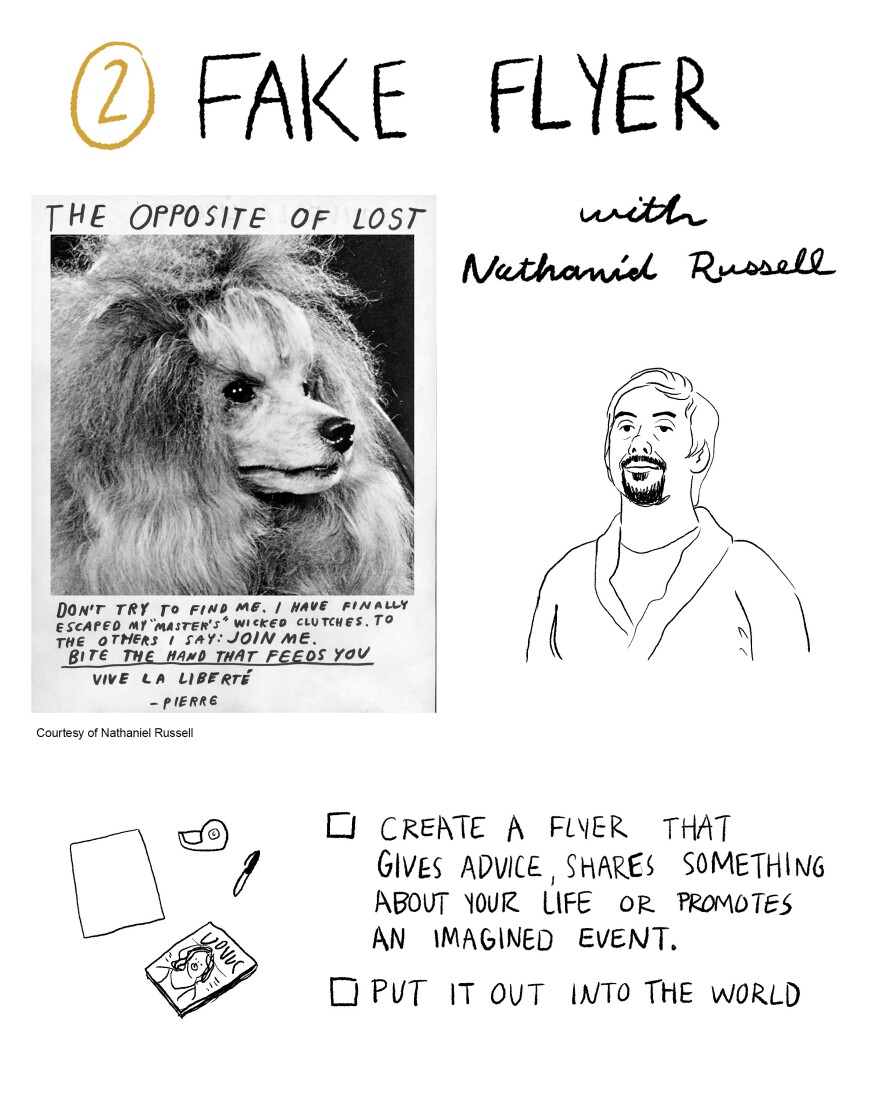 2 FAKE FLYER
with
Nathaniel Russell
THE OPPOSITE OF LOST
DON'T TRY TO FIND ME. I HAVE FINALLY
ESCAPED MY "MASTER'S" WICKED CLUTCHES. TO
THE OTHERS I SAY: JOIN ME.
BITE THE HAND THAT FEEDS YOU
VIVE LA LIBERTÉ
- PIERRE
Courtesy of Nathaniel Russell
CREATE A FLYER THAT
GIVES ADVICE, SHARES SOMETHING
ABOUT YOUR LIFE OR PROMOTES
AN IMAGINED EVENT.
PUT IT OUT INTO THE WORLD